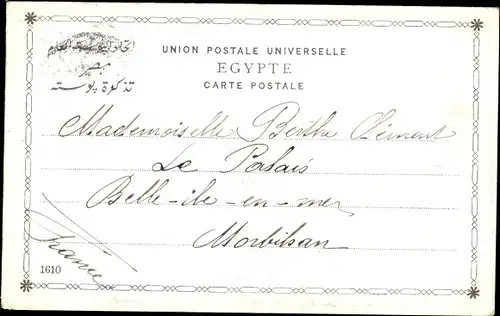 UNION POSTALE UNIVERSELLE
EGYPTE
CARTE POSTALE
مصر
تذكرة بوسته
Mademoiselle Berthe Clément
Le Palais
Belle-ile-en-mer
Morbihan
France
1610